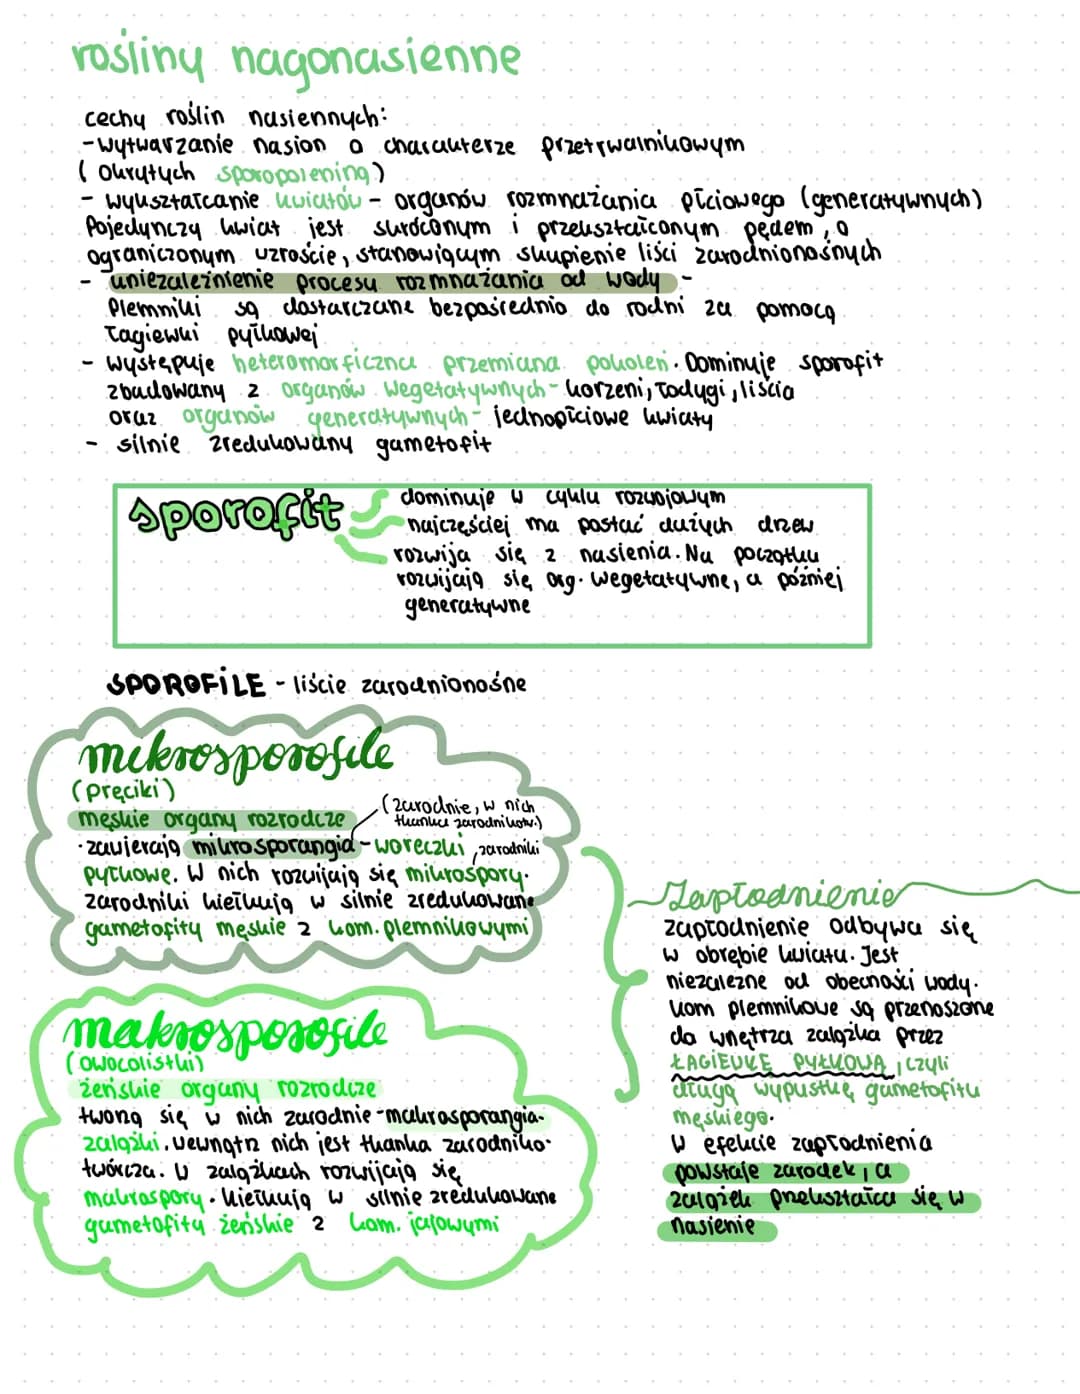 rośliny nagonasienne
cechy roślin nasiennych:
-wytwarzanie nasion o charakterze przetrwalnikowym
(okrytych sporopoleniną)
- wykształcanie kwiatów - organów rozmnażania płciowego (generatywnych)
Pojedynczy kwiat jest skróconym i przekształconym pędem, o
ograniczonym wzroście, stanowiącym skupienie liści zarodnionośnych
- uniezależnienie procesu rozmnażania od wody -
Plemniki są dostarczane bezpośrednio do rodni za pomocą
łagiewki pyłkowej
- występuje heteromorficzna przemiana pokoleń. Dominuje sporofit
zbudowany z organów wegetatywnych - korzeni, łodygi, liścia
oraz organów generatywnych - jednopłciowe kwiaty
- silnie zredukowany gametofit
sporofit
dominuje w cyklu rozwojowym
najczęściej ma postać dużych drzew
rozwija się z nasienia. Na początku
rozwijają się org. wegetatywne, a później
generatywne
SPOROFILE - liście zarodnionośne
mikrosporofile
(pręciki)
męskie organy rozrodcze
(zarodnie, w nich
tkanka zarodnikotw.)
· zawierają mikrosporangia - woreczki
, zarodniki
pyłkowe. W nich rozwijają się mikrospory.
zarodniki kiełkują w silnie zredukowane
gametofity męskie z kom. plemnikowymi
makrosporofile
(owocolistki)
żeńskie organy rozrodcze
tworzą się w nich zarodnie - makrosporangia-
zalążki. wewnątrz nich jest tkanka zarodniko-
twórcza. W zalążkach rozwijają się
makrospory. kiełkują w silnie zredukowane
gametofity żeńskie z kom. jajowymi
Zapłodnienie
zapłodnienie odbywa się
w obrębie kwiatu. Jest
niezależne od obecności wody.
kom plemnikowe są przenoszone
do wnętrza zalążka przez
ŁAGIEWKĘ PYŁKOWĄ, czyli
długą wypustkę gametofitu
męskiego.
W efekcie zapłodnienia
powstaje zarodek, a
zalążek przekształca się w
nasienie